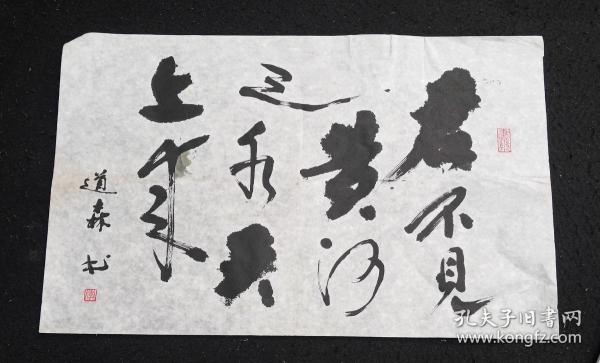 君不見
黄河
之水天
上来
道森书
孔夫子旧書网
www.kongfz.com